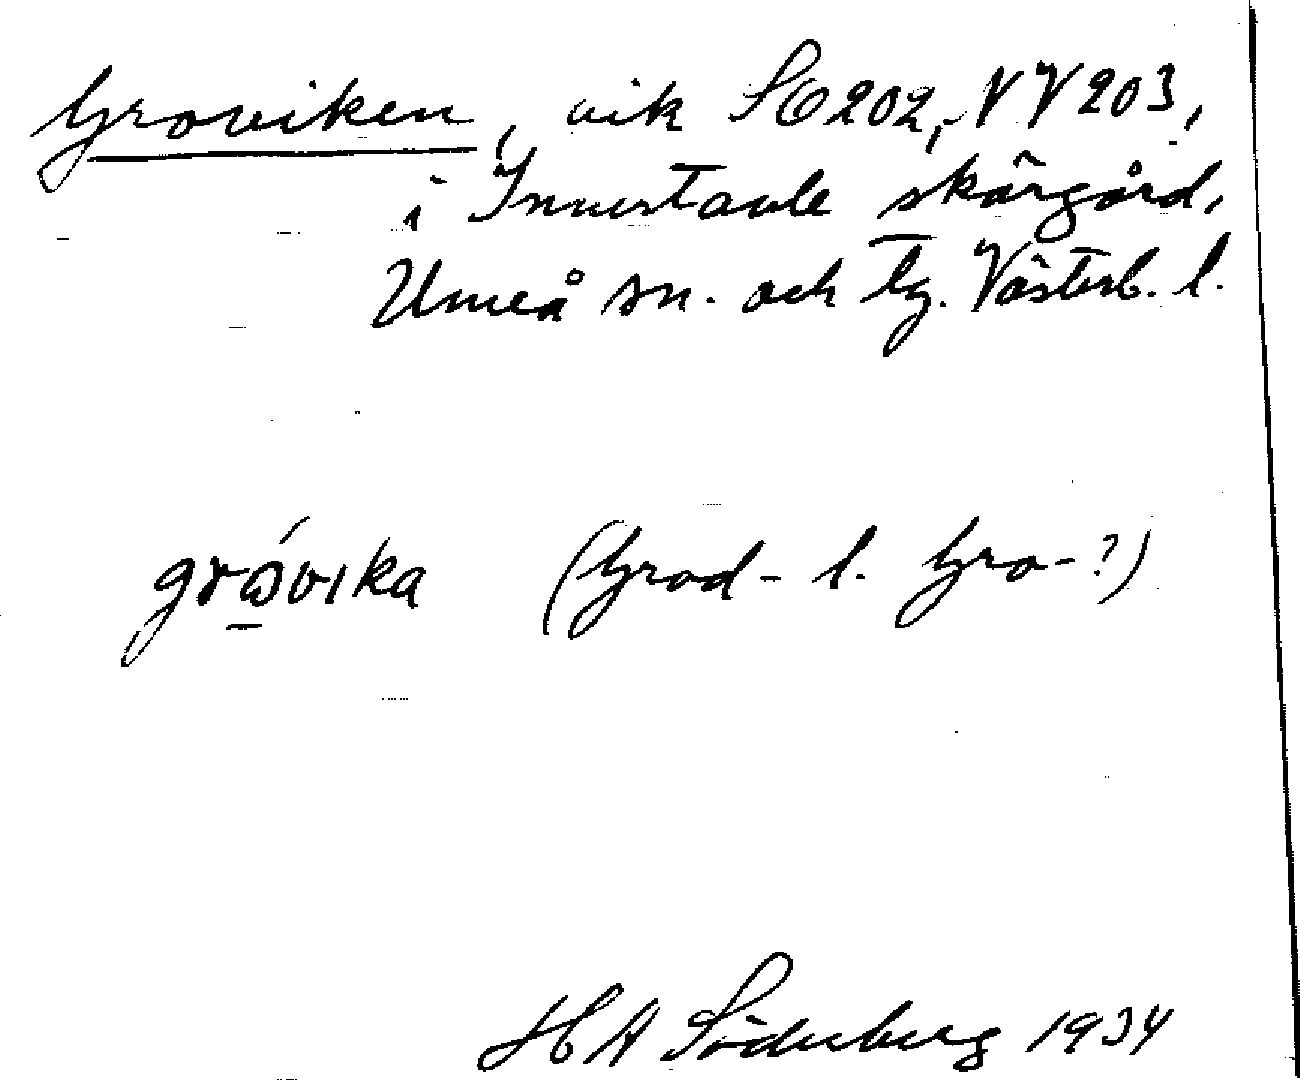 Groviken, vik SO 202, NV 203,
i Innertavle skärgård,
Umeå sn. och tg. Västerb. l.
grώvıka (Grod- l. Gro-?)
H A Söderberg 1934